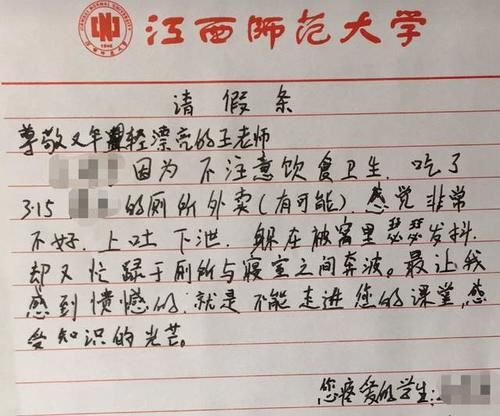 江西师范大学
请假条
尊敬又年轻漂亮的王老师
因为不注意饮食卫生.吃了
3.15 的厕所外卖(有可能).感觉非常
不好.上吐下泄.躲在被窝里瑟瑟发抖.
却又忙碌于厕所与寝室之间奔波。最让我
感到愤憾的.就是不能走进您的课堂,感
受知识的光芒。
您疼爱的学生: